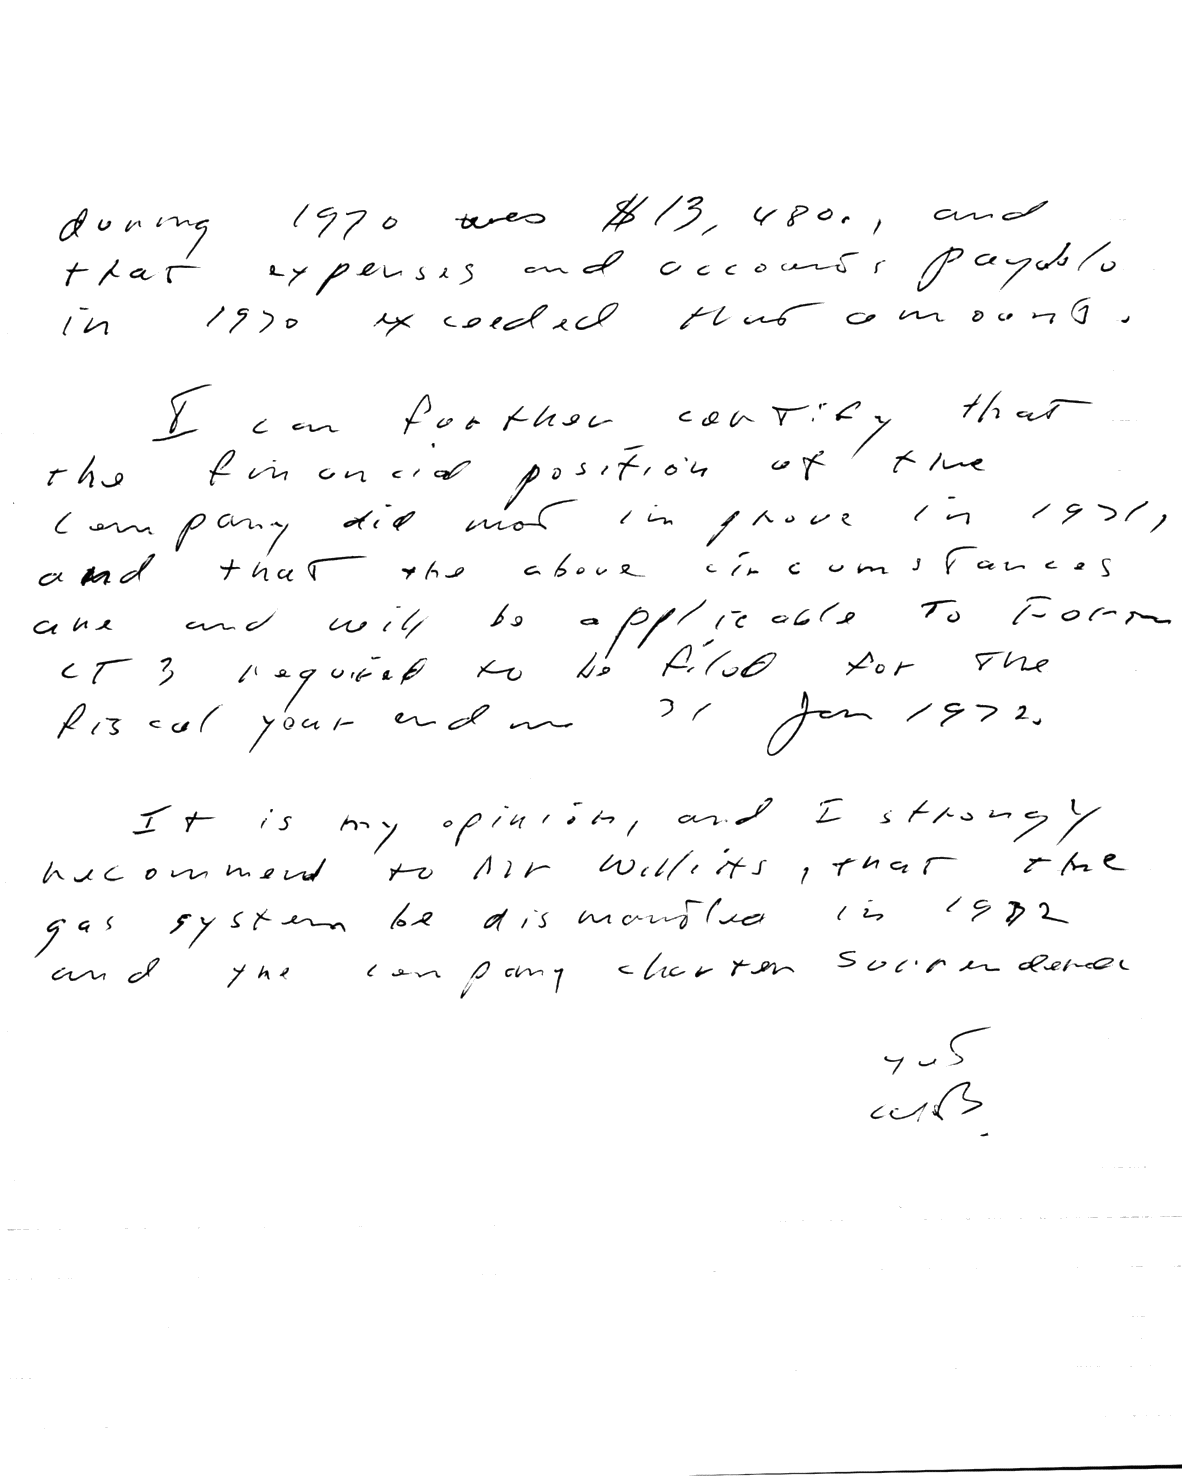 during 1970 was $13,480., and
that expenses and accounts payable
in 1970 exceeded that amount.
I can further certify that
the financial position of the
Company did not improve in 1971,
and that the above circumstances
are and will be applicable to Form
CT 3 required to be filed for the
fiscal year endin 31 Jan 1972.
It is my opinion, and I strongly
recommend to Mr Willits, that the
gas system be dismantled in 1972
and the company charter surrendered
WB.